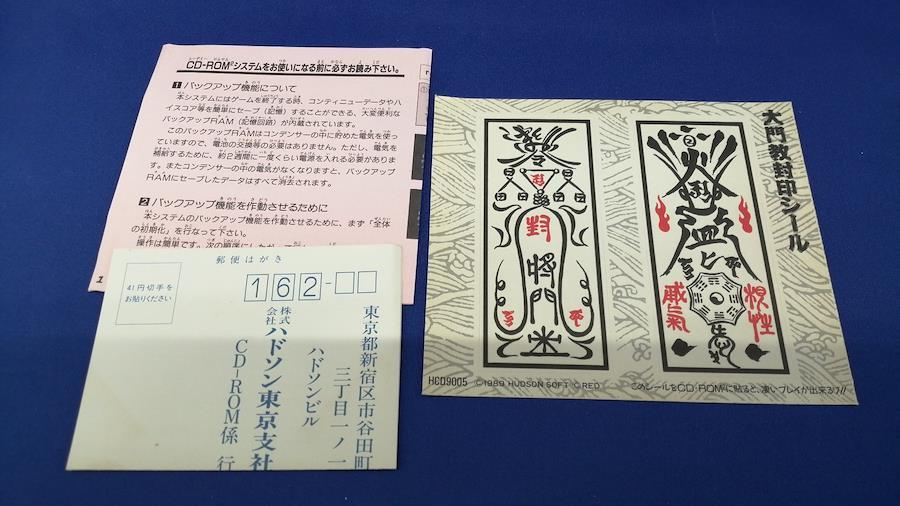 CD-ROM²システムをお使いになる前に必ずお読み下さい。
1 バックアップ機能について
本システムにはゲームを終了する時、コンティニューデータやハ
イスコア等を簡単にセーブ(記憶)することができる、大変便利な
バックアップRAM(記憶回路)が内蔵されています。
このバックアップRAMはコンデンサーの中に貯めた電気を使っ
ていますので、電池の交換等の必要はありません。ただし、電気を
補給するために、約2週間に一度くらい電源を入れる必要がありま
す。またコンデンサーの中の電気がなくなりますと、バックアップ
RAMにセーブしたデータはすべて消去されます。
2 バックアップ機能を作動させるために
本システムのバックアップ機能を作動させるために、まず「全体
の初期化」を行なって下さい。
操作は簡単です。次の順序にしたがって
1
郵便はがき
41円切手を
お貼りください
162-
東京都新宿区市谷田町
三丁目一ノ一
ハドソンビル
株式会社ハドソン東京支社
CD-ROM係 行
大門教封印シール
封
将門
HCD9005
©1989 HUDSON SOFT ©RED
このシールをCD-ROM²に貼ると、凄いプレイが出来る?!!